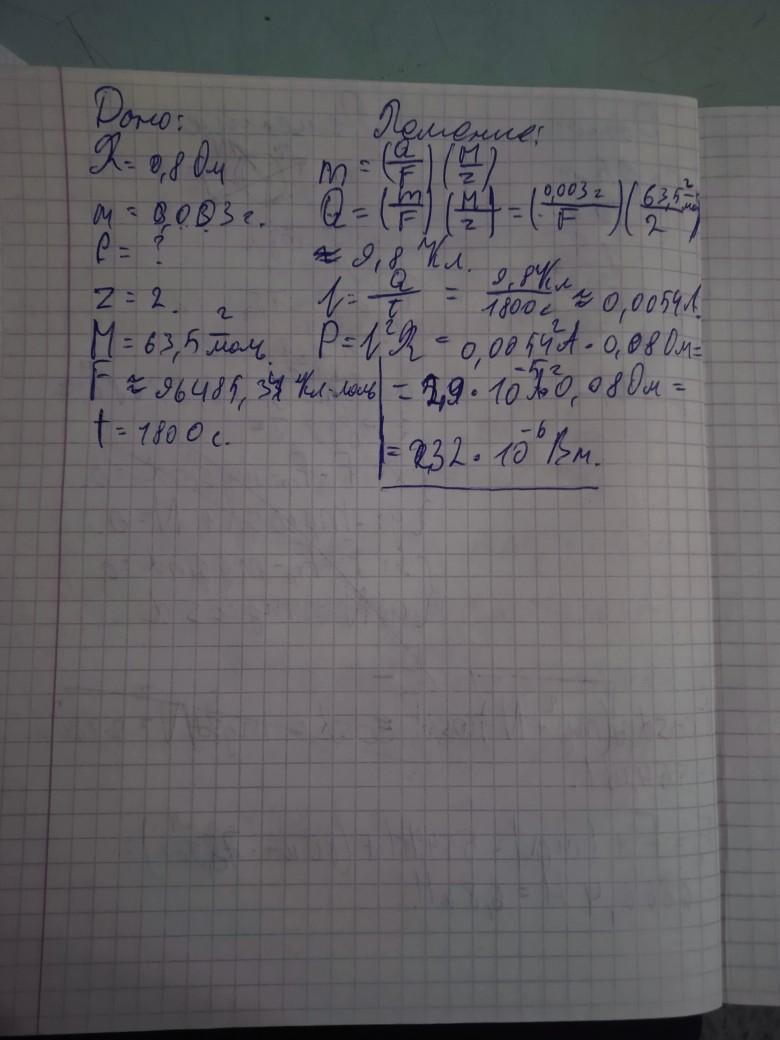 Дано:
R = 0,8 Ом
m = 0,003 г.
P = ?
z = 2.
M = 63,5 г/моль.
F ≈ 96485,34 Кл·моль
t = 1800 с.
Решение:
m = (Q/F) (M/z)
Q = (m/F) (M/z) = (0,003 г/F) (63,5 г/моль/2)
≈ 9,8 Кл.
I = Q/t = 9,8 Кл/1800 с ≈ 0,0054 А.
P = I²R = 0,0054² А · 0,08 Ом =
= 2,9 · 10⁻⁵ А² · 0,08 Ом =
= 2,32 · 10⁻⁶ Вт.